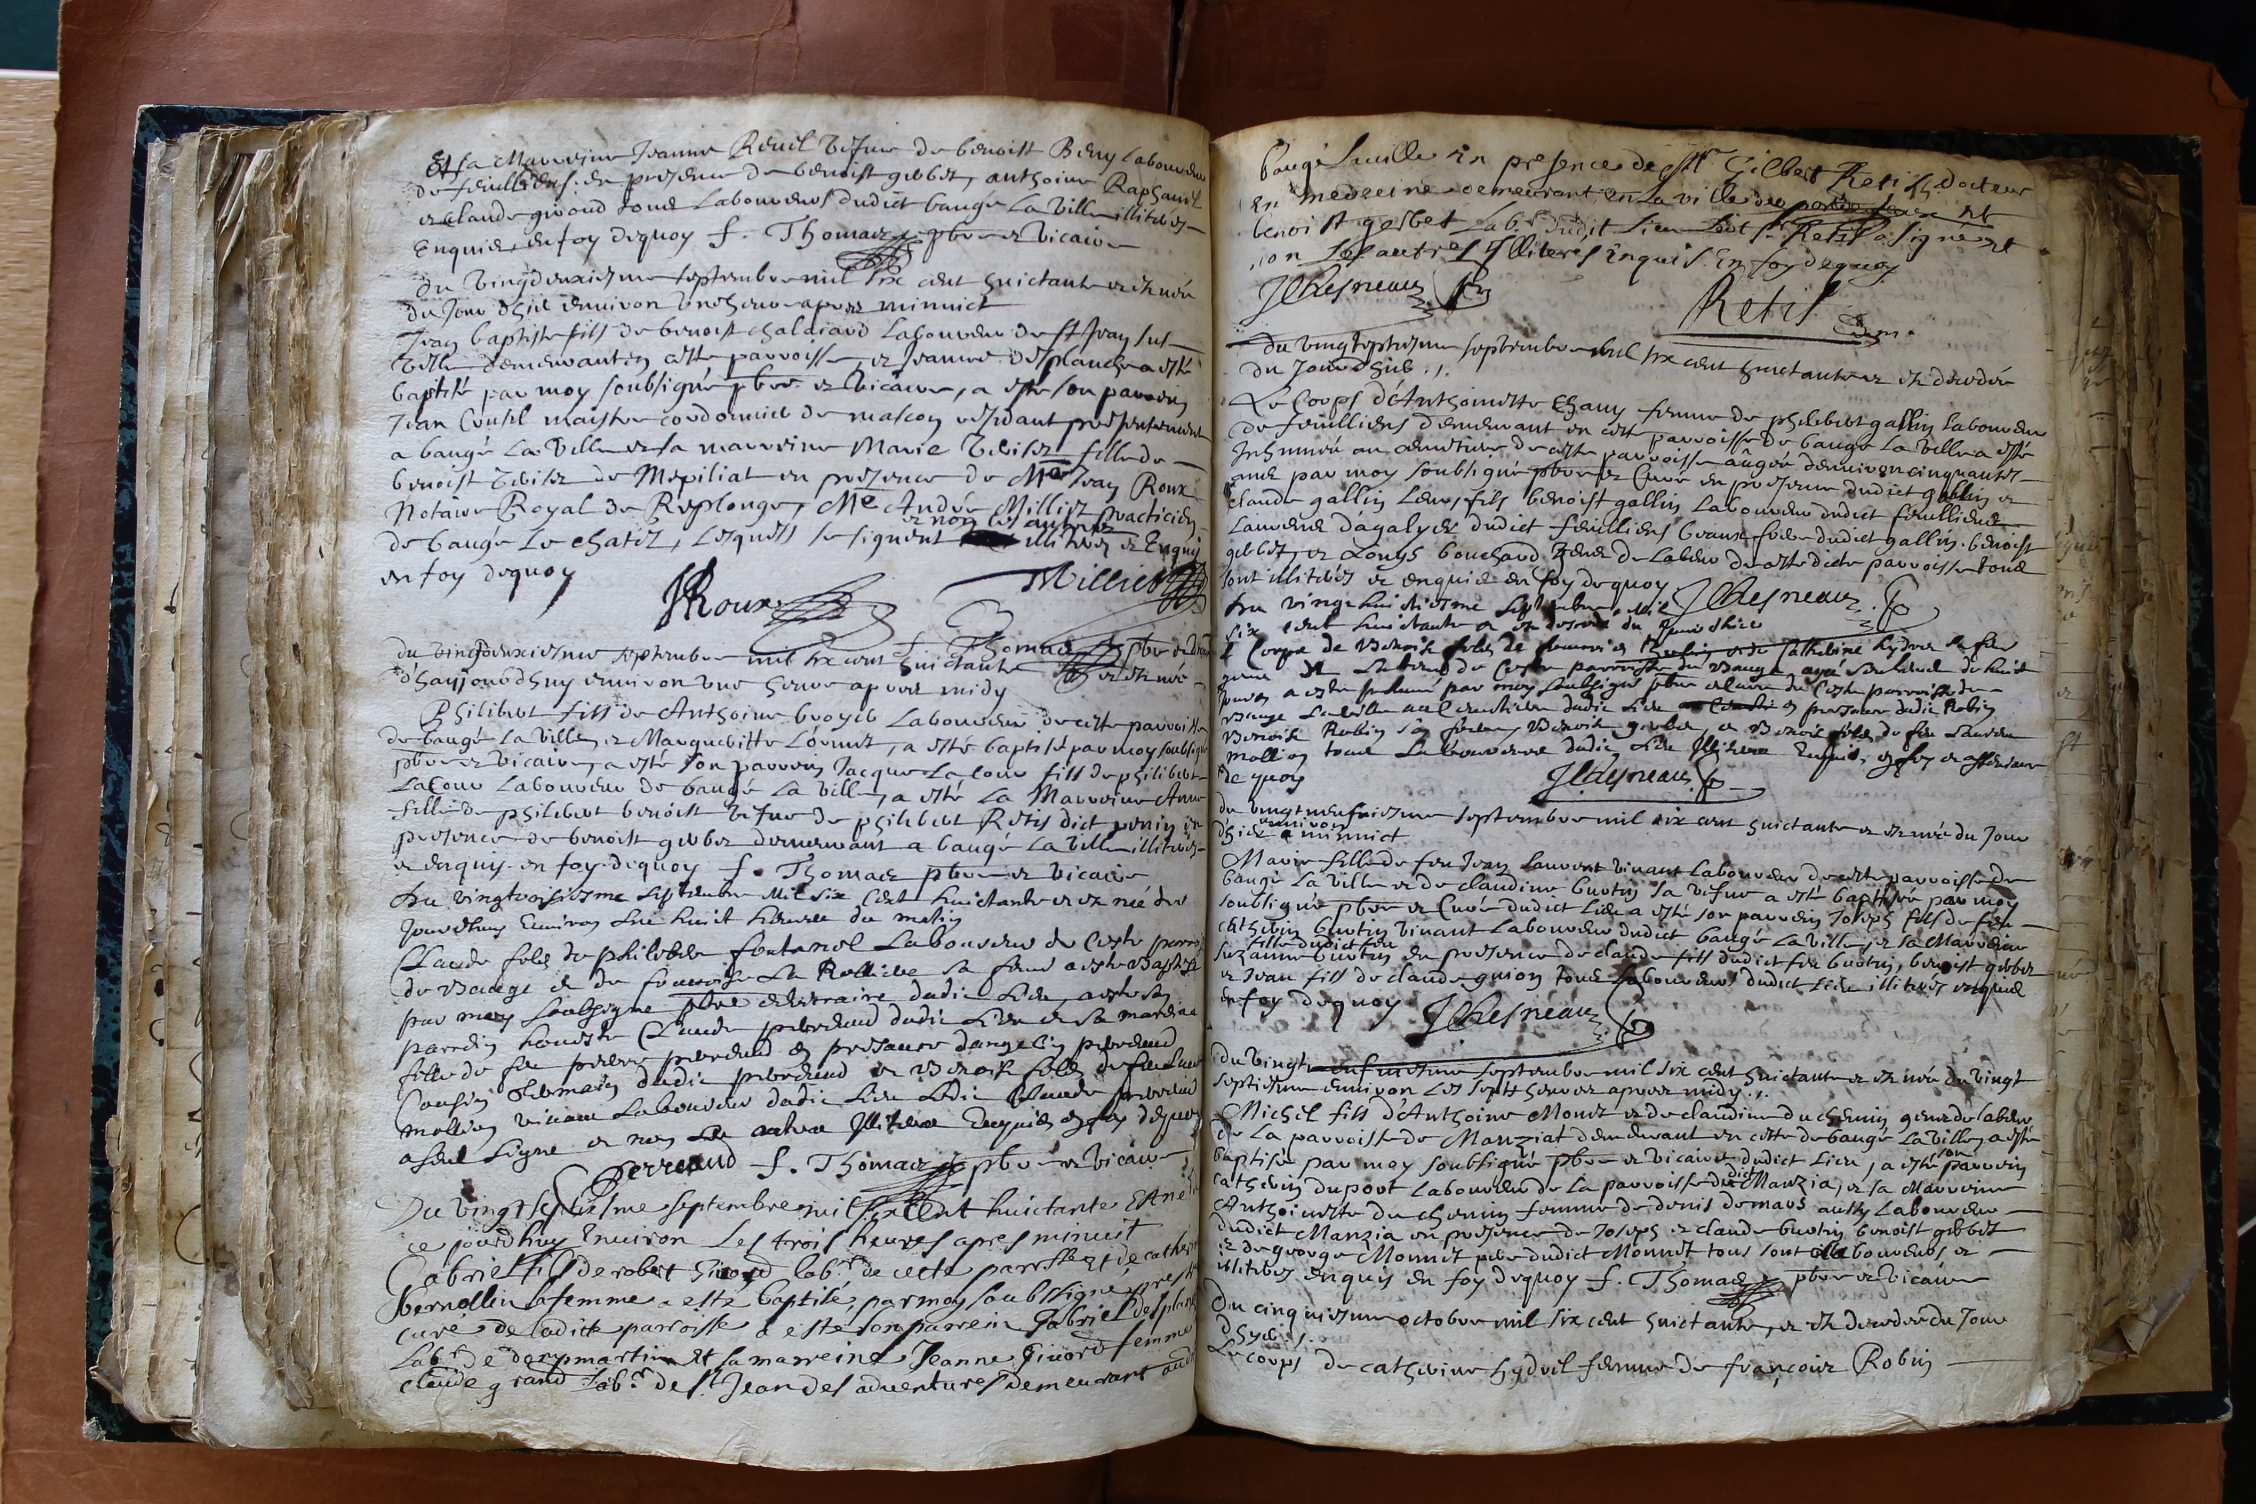 Et sa Marreine Jeanne Revil vefue de benoist Beny laboureur
de feulliens. en presence de benoist gerbet, anthoine Raphanel
et claude giroud tous laboureurs dudict baugé La Ville illiterés
Enquis, en foy dequoy f. Thomas pbre et vicaire
du vingtdeuxiesme septembre mil six cent huictante et est née
du jour d'hier environ une heure apres minuict
Jean baptiste fils de benoist chaldiard laboureur de St Jean sus
Velle demeurant en ceste parroisse, et Jeanne desplanche a esté
baptisé par moy soubsigné pbre et vicaire, a esté son parrein
Jean Coupil maistre cordonnier de mascon residant presentement
a baugé La Ville et sa marreine Marie fille de
benoist de Mepiliat en presence de Me Jean Roux
Notaire Royal de Replonge, Me André Milliet practicien
de baugé Le chatel, lesquels se signent et non les autres illiteres et Enquis
en foy dequoy
JRoux Milliet
f. Thomas pbre et vicaire
du vingtdeuxiesme septembre mil six cent huictante et est née
d'haujourdhuy environ une heure apres midy
Philibert fils de Anthoine broyer Laboureur de ceste parroisse
de baugé La Ville, et Margueritte Loruet, a esté baptisé par moy soubsigné
pbre et vicaire, a esté son parrein Jacque Lacour fils de philibert
Lacour Laboureur de baugé La Ville, a esté La Marreine Anne
fille de philibert benoist vefue de philibert Retis dict en
presence de benoist gerbet demeurant a baugé La Ville illiterés
et enquis en foy dequoy f. Thomas pbre et vicaire
Du vingtroisiesme septembre mil six cent huictante et est né du
jourdhuy Environ les huit heures du matin
Claude fils de philibert fontanel Laboureur de Ceste parroisse
de Baugé et de francoise La Rolliere sa feme a esté Baptisé
par moy soubsigne pbre et vicaire dudic Lieu, a esté son
parrein honeste Claude perreaud dudic Lieu et sa mareine
fille de feu pierre perreaud en presance dangelin perreaud
Cousin Germain dudic perreaud et Benoist fils de feu
mollion vivant Laboureur dudic Lieu Ledic Claude perreaud
a seul signe et non les autres Illiteres Enquis en foy dequoy
Perreaud f. Thomas pbre et vicaire
Du vingt septiesme septembre mil six Cent huictante Est né
ce jourdhuy Environ Les trois heures apres minuit
Gabriel fils de robert Girord labr de cette parroisse et de catherine
bernollin sa femme a esté baptisé, par moy soubsigné prestre
curé de ladicte parroisse a esté son parrein Gabriel desplanche
labr de domptmartin et sa marreine Jeanne Girord femme
claude grand labr de St Jean des adventures demeurant audit
baugé laville En presence de Mr Gilbert Retis docteur
En medecine demeurant en la ville du et
benoist gerbet labr dudit lieu ledit Sr Retis a signé et
non les autres Illiterés Enquis En foy dequoy
JChesneau Retis Dm.
du vingtseptiesme septembre mil six cent huictante et est decedée
du jourdhuy.
Le Corps d'Anthoinette Chany femme de philibert gallin laboureur
de feulliens demeurant en ceste parroisse de baugé la ville a esté
Inhumée au cemetiere de ceste parroisse aagée denviron cinquante
annes par moy soubsigné pbre et Curé en presence dudict gallin et
claude gallin leurs fils benoist gallin laboureur dudict feulliens
Laurent dagalyer dudict feulliens beaux frere dudict gallin, benoist
gerbet, et Louys bouchard gens de labeur de cette dicte parroisse tous
sont illiterés et enquis en foy dequoy JChesneau
Du vingt huictiesme septembre mil
six cent huictante et est decedé du jour dhier
le Corps de Benoist fils de francois Robin et de Catherine hydvel sa feme
gens de labeur de Ceste parroisse de Baugé agé seulement de huit
jours a esté Inhumé par moy soubsigné pbre et Cure de Ceste parroisse de
Baugé Laville au Cemetiere dudic Lieu en presance dudic Robin
Benoist Robin son frere, Benoist gerbet, et Benoist fils de feu
mollion tous Laboureurs dudic Lieu Illiteres Enquis, en foy et asseurance
de quoy JChesneau
du vingtneufviesme septembre mil six cent huictante et est née du jour
d'hier environ a minuict.
Marie fille de feu Jean Laurent vivant laboureur de ceste parroisse de
baugé La Ville et de claudine burtin sa vefue a esté baptisée par moy
soubsigné pbre et Curé dudict lieu a esté son parrein Joseph fils de feu
Catherin burtin vivant Laboureur dudict baugé La Ville, et sa Marreine
suzanne burtin fille dudict feu en presence de claude fils dudict feu burtin, benoist gerbet
et Jean fils de claude guion tous laboureurs dudict lieu illiterés enquis
En foy dequoy JChesneau
du vingt neufviesme septembre mil six cent huictante et est née du vingt
septiesme environ Les sept heures apres midy.
Michel fils d'Anthoine Monet et de claudine du chemin gens de labeur
de La parroisse de Manziat demeurant en cette de baugé La Ville, a esté
baptisé par moy soubsigné pbre et vicaire dudict Lieu, a esté son parrein
catherin dupont Laboureur de La parroisse dudict Manzia, et sa Marreine
Anthoinette du chemin femme de denis demaes aussy Laboureur
dudict Manzia en presence de Joseph et claude burtin benoist gerbet
et de george Monnet pere dudict Monnet tous sont Laboureurs et
illiteres enquis en foy dequoy f. Thomas pbre et vicaire
Du cinquiesme octobre mil six cent huictante, et est decedée du jour
d'hyer.
Le corps de catherine hydvel femme de françois Robin